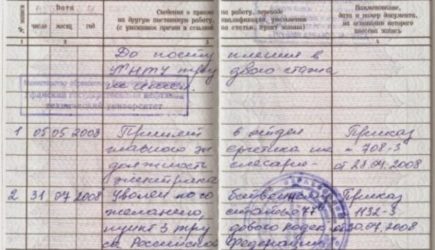 Сведения о приеме
на другую постоянную работу,
(с указанием причин и ссылкой
работу, переводе
квалификации, увольнении
на статью, пункт закона)
Наименование,
дата и номер документа,
на основании которого
внесена запись
№
Дата
число
месяц
год
1 2 3 4
До поступления в
УГНТУ трудового стажа
не имеет.
технический университет
1 05 05 2008 Принят в отдел Приказ
главного энергетика на № 708-3
должность слесаря- от 28.04.2008
электрика
2 31 07 2008 Уволен по собственному Приказ
желанию, статья 77 № 1132-3
пункт 3 Трудового кодекса от 30.07.2008
Российской Федерации